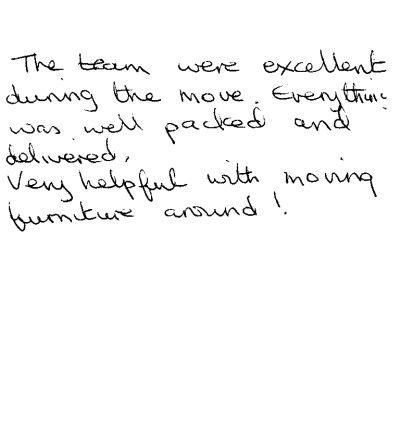 The team were excellent
during the move. Everything
was well packed and
delivered.
Very helpful with moving
furniture around!